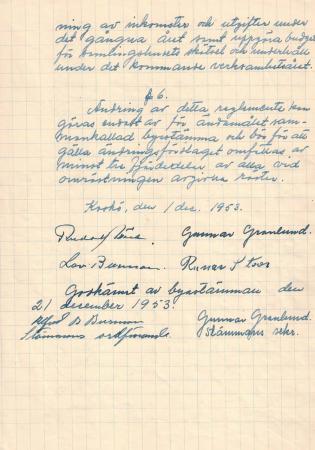 ning av inkomster och utgifter under
det gångna året samt uppgöra budget
för samlingshusets skötsel och underhåll
under det kommande verksamhetsåret.
§ 6.
Ändring av detta reglemente kan
göras endast av för ändamålet sam-
mankallad byastämma och bör för att
gälla ändringsförslaget omfattas av
minst tre fjärdedelar av alla vid
omröstningen avgivna röster.
Korsö, den 1 dec. 1953.
Rudolf Gunnar Granlund.
Runar
Godkänt av byastämman den
21 december 1953.
Alfred B Burman Gunnar Granlund.
Stämmans ordförande Stämmans sekr.